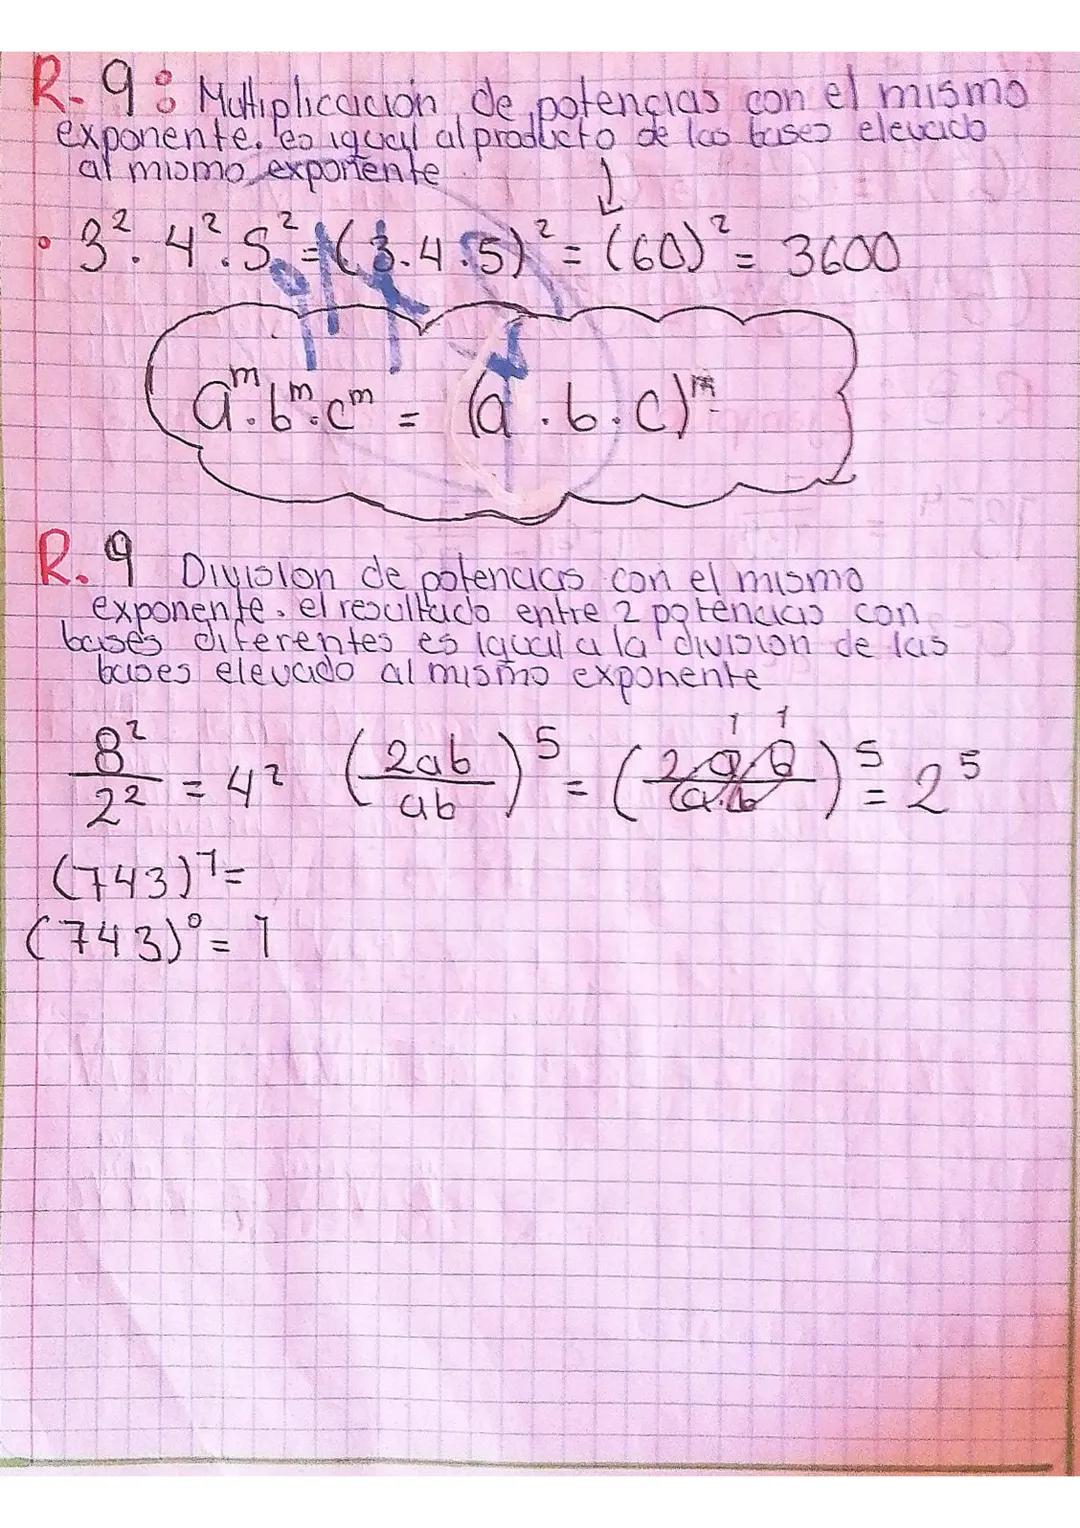 R-9: Multiplicación de potencias con el mismo
exponente. es igual al producto de las bases elevado
al mismo exponente
• 3². 4². 5² = (3.4.5)² = (60)² = 3600
aᵐ.bᵐ.cᵐ = (a . b . c)ᵐ
R.9 División de potencias con el mismo
exponente. el resultado entre 2 potencias con
bases diferentes es igual a la division de las
bases elevado al mismo exponente
8²/2² = 4² (2ab/ab)⁵ = (2ab/a.b)⁵ = 2⁵
1 1
(743)¹=
(743)⁰= 1